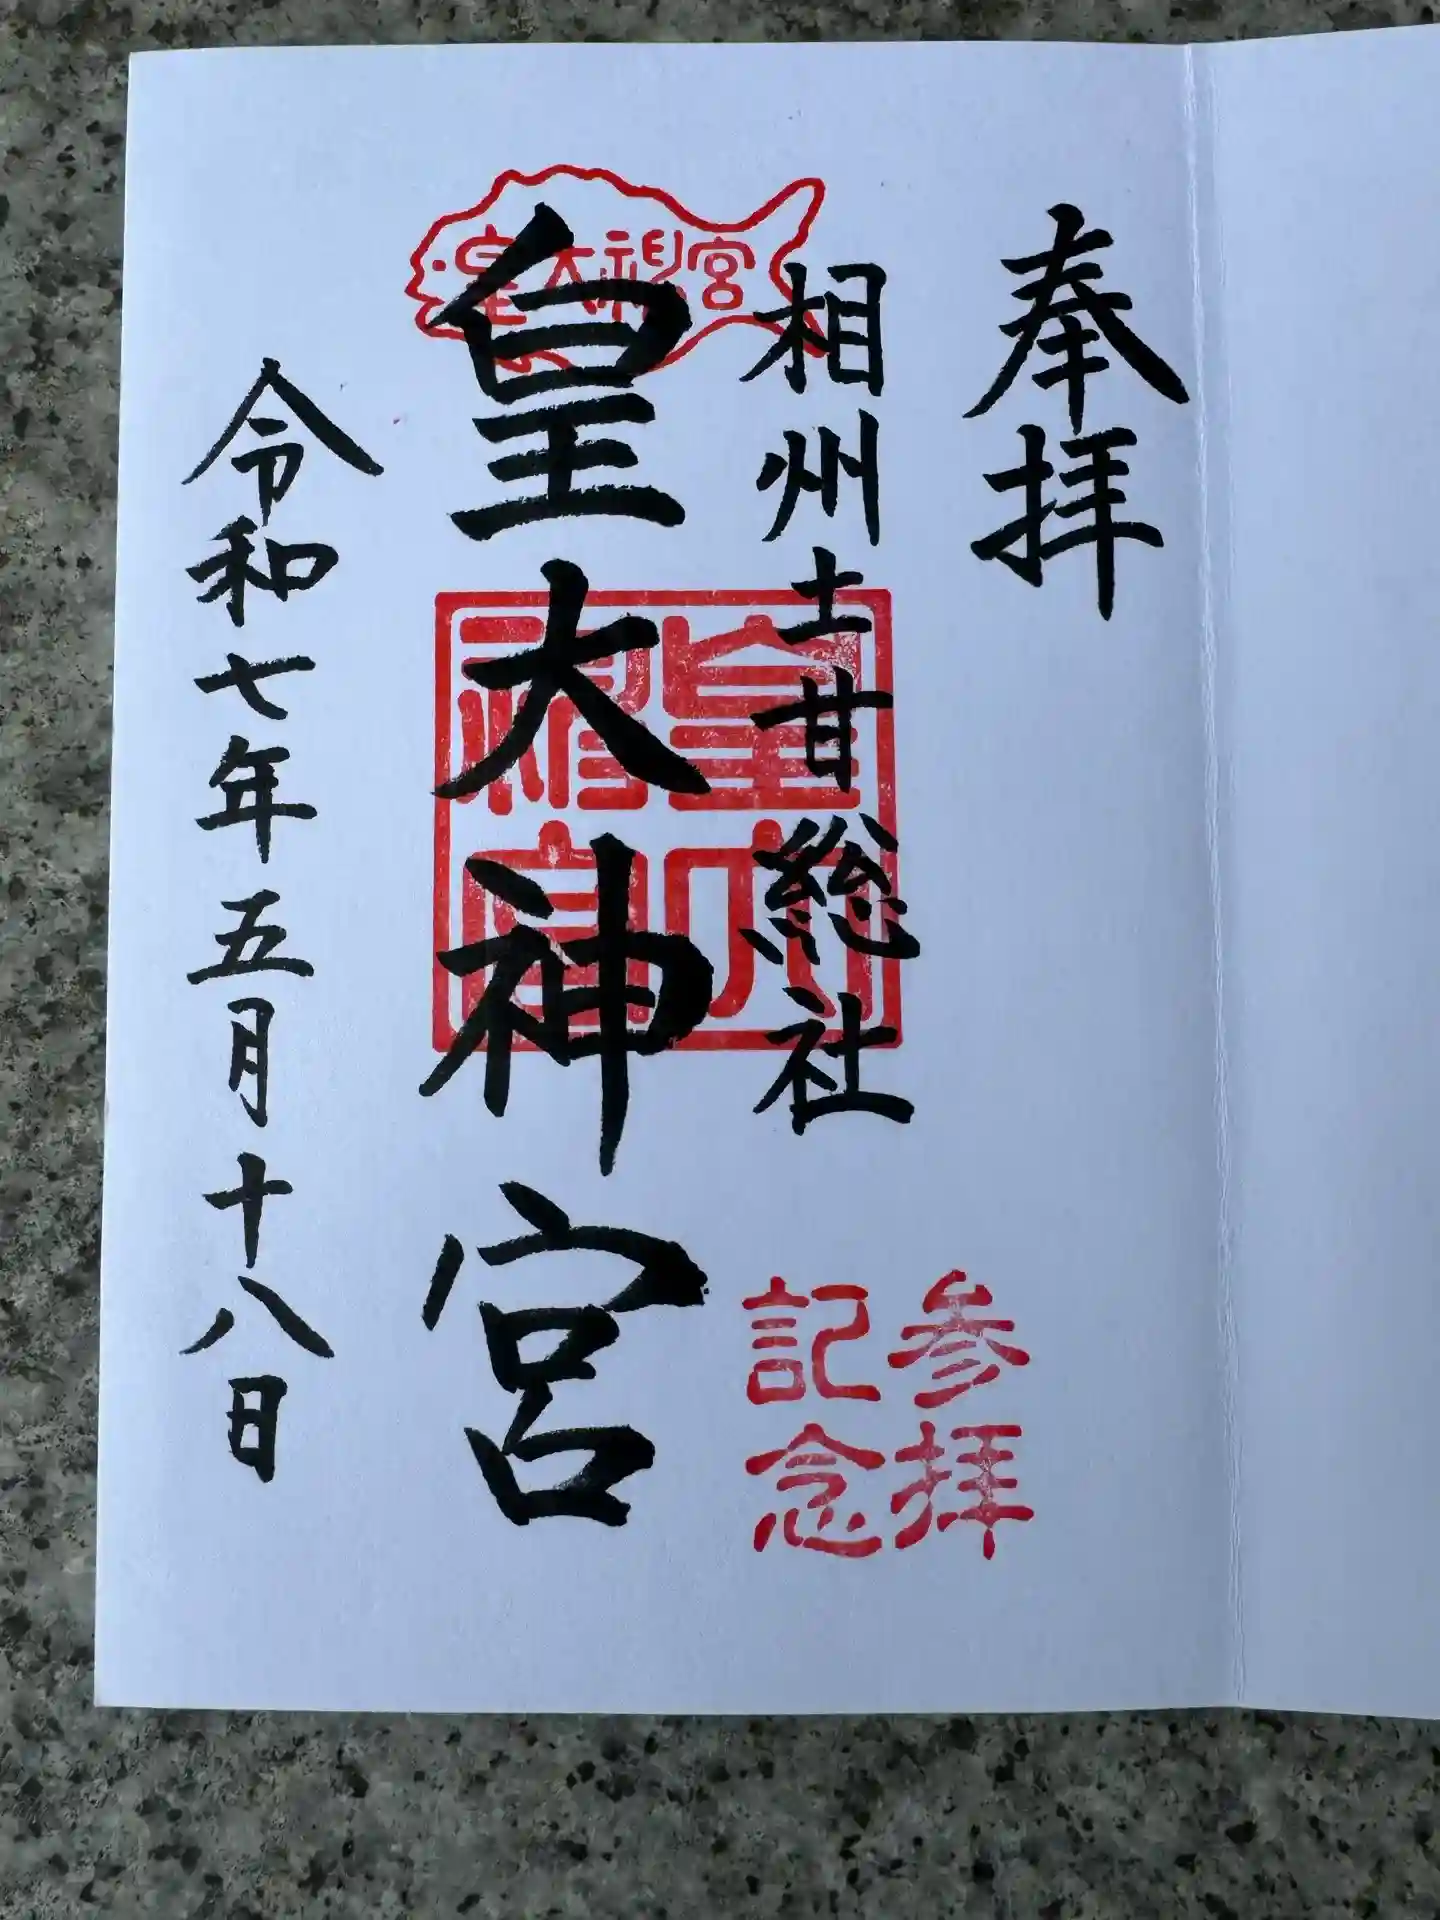 奉拝
相州土甘総社
皇大神宮
令和七年五月十八日
皇大神宮
皇大
神宮
参拝
記念